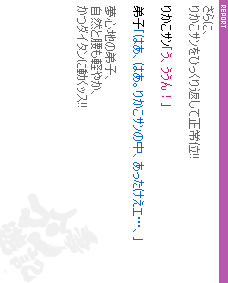 REPORT
さらに、
りかこサンをひっくり返して正常位!!
りかこサン「う、ううん！」
弟子「はあ、はあ。りかこサンの中、あったけェエ・・・、」
夢心地の弟子、
自然と腰も軽やか、
かつダイタンに動くッス!!